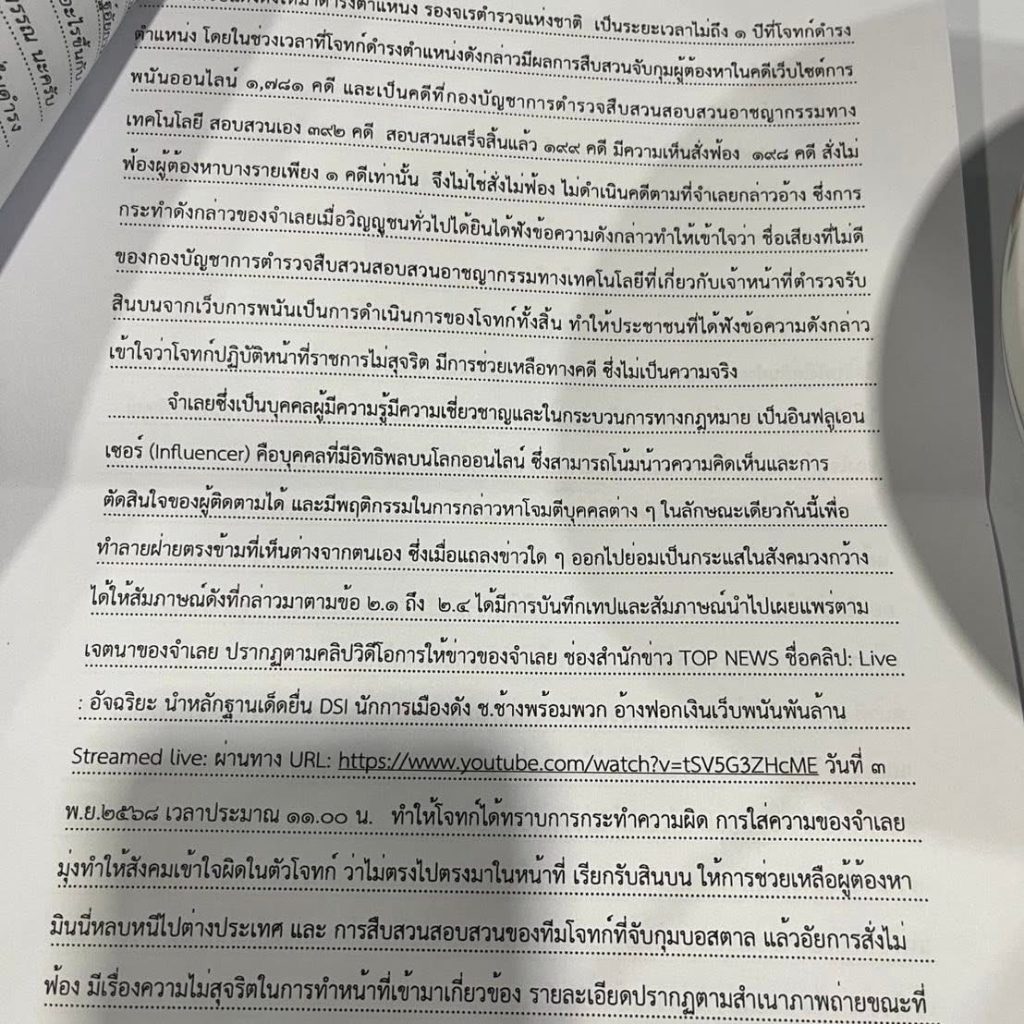 รองจเรตำรวจแห่งชาติ เป็นระยะเวลาไม่ถึง ๑ ปีที่โจทก์ดำรง
ตำแหน่ง โดยในช่วงเวลาที่โจทก์ดำรงตำแหน่งดังกล่าวมีผลการสืบสวนจับกุมผู้ต้องหาในคดีเว็บไซต์การ
พนันออนไลน์ ๑,๗๘๑ คดี และเป็นคดีที่กองบัญชาการตำรวจสืบสวนสอบสวนอาชญากรรมทาง
เทคโนโลยี สอบสวนเอง ๓๙๒ คดี สอบสวนเสร็จสิ้นแล้ว ๑๙๙ คดี มีความเห็นสั่งฟ้อง ๑๙๘ คดี สั่งไม่
ฟ้องผู้ต้องหาบางรายเพียง ๑ คดีเท่านั้น จึงไม่ใช่สั่งไม่ฟ้อง ไม่ดำเนินคดีตามที่จำเลยกล่าวอ้าง ซึ่งการ
กระทำดังกล่าวของจำเลยเมื่อวิญญูชนทั่วไปได้ยินได้ฟังข้อความดังกล่าวทำให้เข้าใจว่า ชื่อเสียงที่ไม่ดี
ของกองบัญชาการตำรวจสืบสวนสอบสวนอาชญากรรมทางเทคโนโลยีที่เกี่ยวกับเจ้าหน้าที่ตำรวจรับ
สินบนจากเว็บการพนันเป็นการดำเนินการของโจทก์ทั้งสิ้น ทำให้ประชาชนที่ได้ฟังข้อความดังกล่าว
เข้าใจว่าโจทก์ปฏิบัติหน้าที่ราชการไม่สุจริต มีการช่วยเหลือทางคดี ซึ่งไม่เป็นความจริง
จำเลยซึ่งเป็นบุคคลผู้มีความรู้มีความเชี่ยวชาญและในกระบวนการทางกฎหมาย เป็นอินฟลูเอน
เซอร์ (Influencer) คือบุคคลที่มีอิทธิพลบนโลกออนไลน์ ซึ่งสามารถโน้มน้าวความคิดเห็นและการ
ตัดสินใจของผู้ติดตามได้ และมีพฤติกรรมในการกล่าวหาโจมตีบุคคลต่าง ๆ ในลักษณะเดียวกันนี้เพื่อ
ทำลายฝ่ายตรงข้ามที่เห็นต่างจากตนเอง ซึ่งเมื่อแถลงข่าวใด ๆ ออกไปย่อมเป็นกระแสในสังคมวงกว้าง
ได้ให้สัมภาษณ์ดังที่กล่าวมาตามข้อ ๒.๑ ถึง ๒.๔ ได้มีการบันทึกเทปและสัมภาษณ์นำไปเผยแพร่ตาม
เจตนาของจำเลย ปรากฏตามคลิปวิดีโอการให้ข่าวของจำเลย ช่องสำนักข่าว TOP NEWS ชื่อคลิป: Live
: อัจฉริยะ นำหลักฐานเด็ดยื่น DSI นักการเมืองดัง ช.ช้างพร้อมพวก อ้างฟอกเงินเว็บพนันพันล้าน
Streamed live: ผ่านทาง URL: https://www.youtube.com/watch?v=tSV5G3ZHcME วันที่ ๓
พ.ย.๒๕๖๘ เวลาประมาณ ๑๑.๐๐ น. ทำให้โจทก์ได้ทราบการกระทำความผิด การใส่ความของจำเลย
มุ่งทำให้สังคมเข้าใจผิดในตัวโจทก์ ว่าไม่ตรงไปตรงมาในหน้าที่ เรียกรับสินบน ให้การช่วยเหลือผู้ต้องหา
มินนี่หลบหนีไปต่างประเทศ และ การสืบสวนสอบสวนของทีมโจทก์ที่จับกุมบอสตาล แล้วอัยการสั่งไม่
ฟ้อง มีเรื่องความไม่สุจริตในการทำหน้าที่เข้ามาเกี่ยวข้อง รายละเอียดปรากฏตามสำเนาภาพถ่ายขณะที่